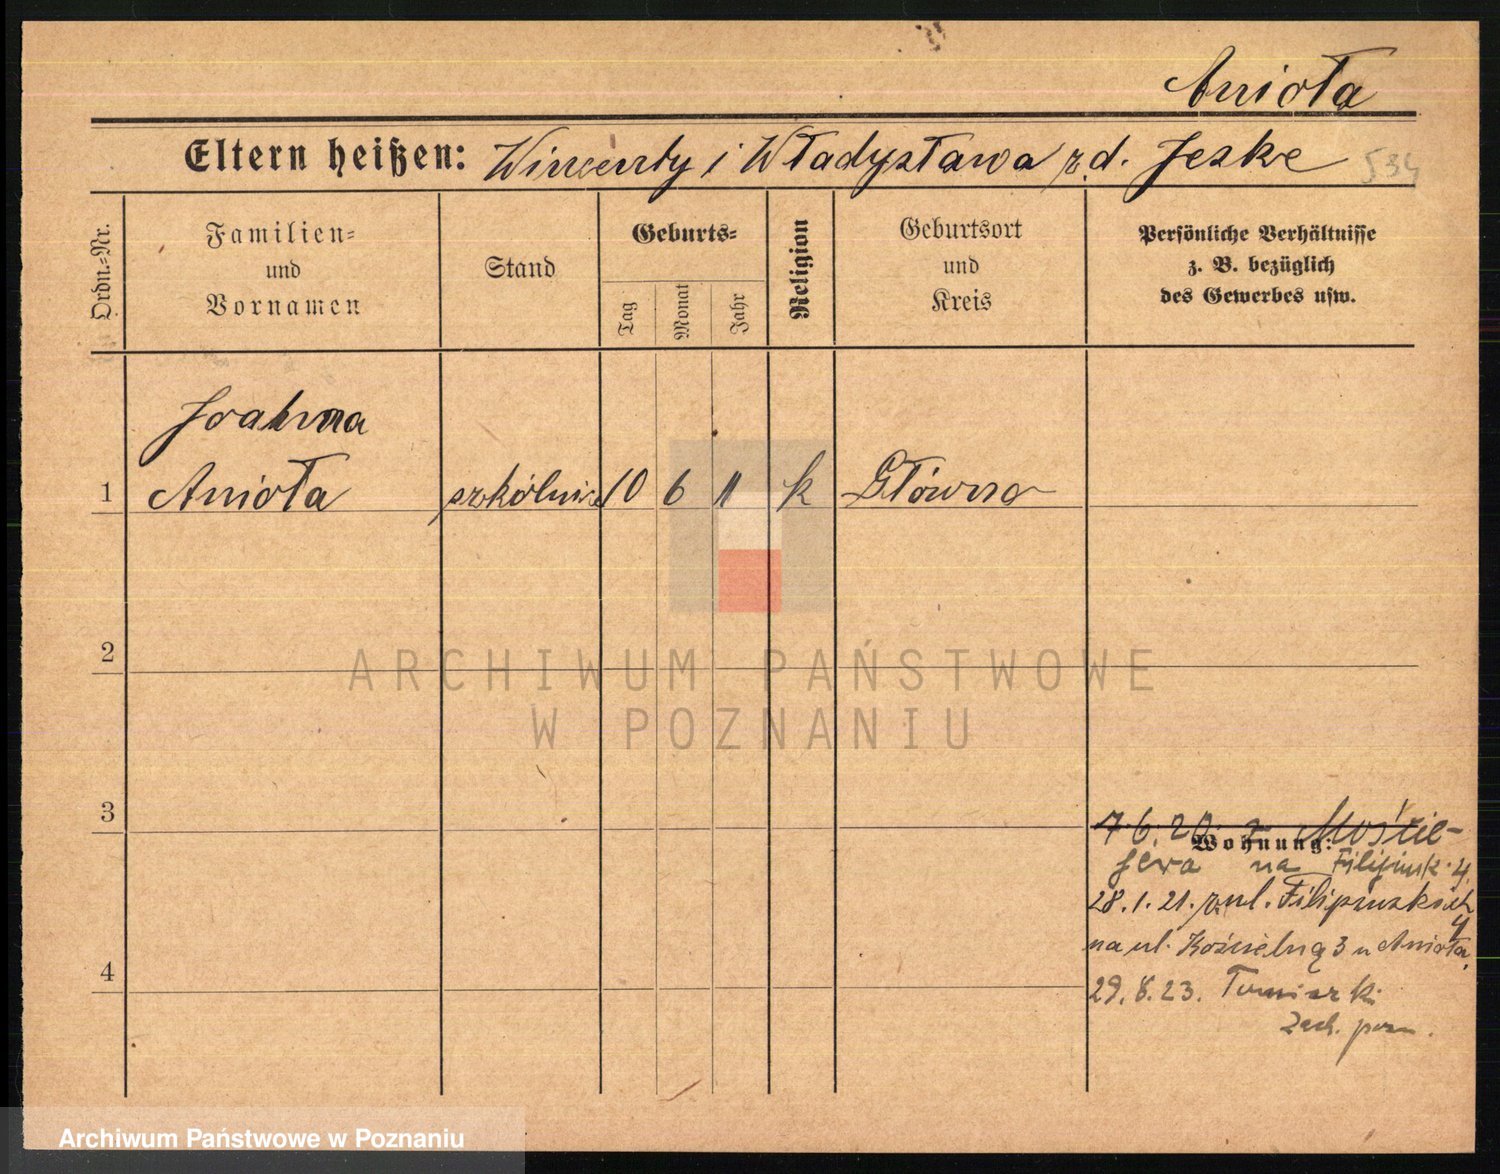 Anioła
Eltern heißen: Wincenty i Władysława z d. Jeske 534
Ordn.-Nr.
Familien-
und
Vornamen
Stand
Geburts-
Tag
Monat
Jahr
Religion
Geburtsort
und
Kreis
Persönliche Verhältnisse
z. B. bezüglich
des Gewerbes usw.
Joanna
1 Anioła 10 6 11 k Główna
2
3
4
7.6.20. z Moście-
Wohnung:
jewa na Filipińsk. 4.
28.1.21. z ul. Filipińskich
4
na ul. Kościelną 3 u Anioła.
29.8.23.
Zach. pozn.
ARCHIWUM PAŃSTWOWE
W POZNANIU
Archiwum Państwowe w Poznaniu